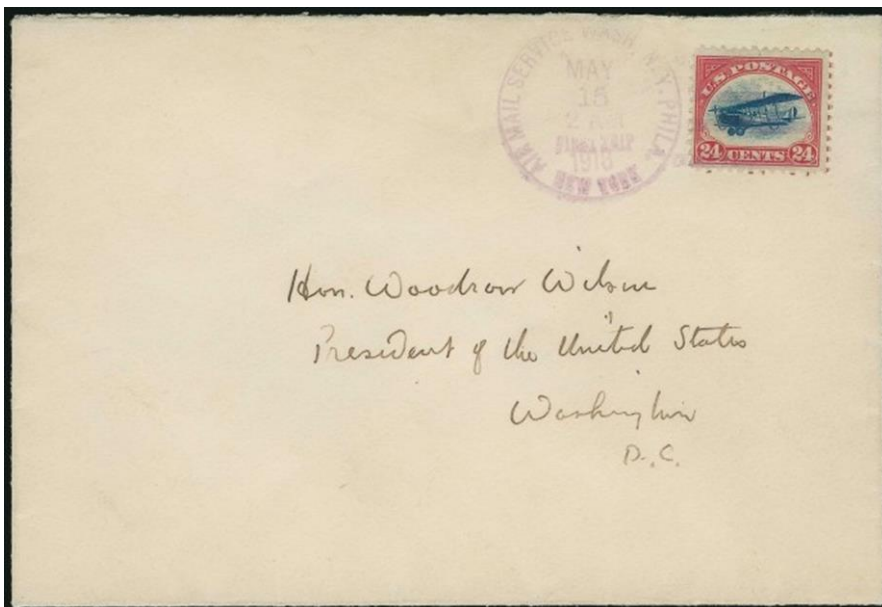 AIR MAIL SERVICE WASH. N.Y. PHILA.
MAY
15
FIRST TRIP
NEW YORK
U S POSTAGE
24 CENTS 24
Hon. Woodrow Wilson
President of the United States
Washington
D.C.